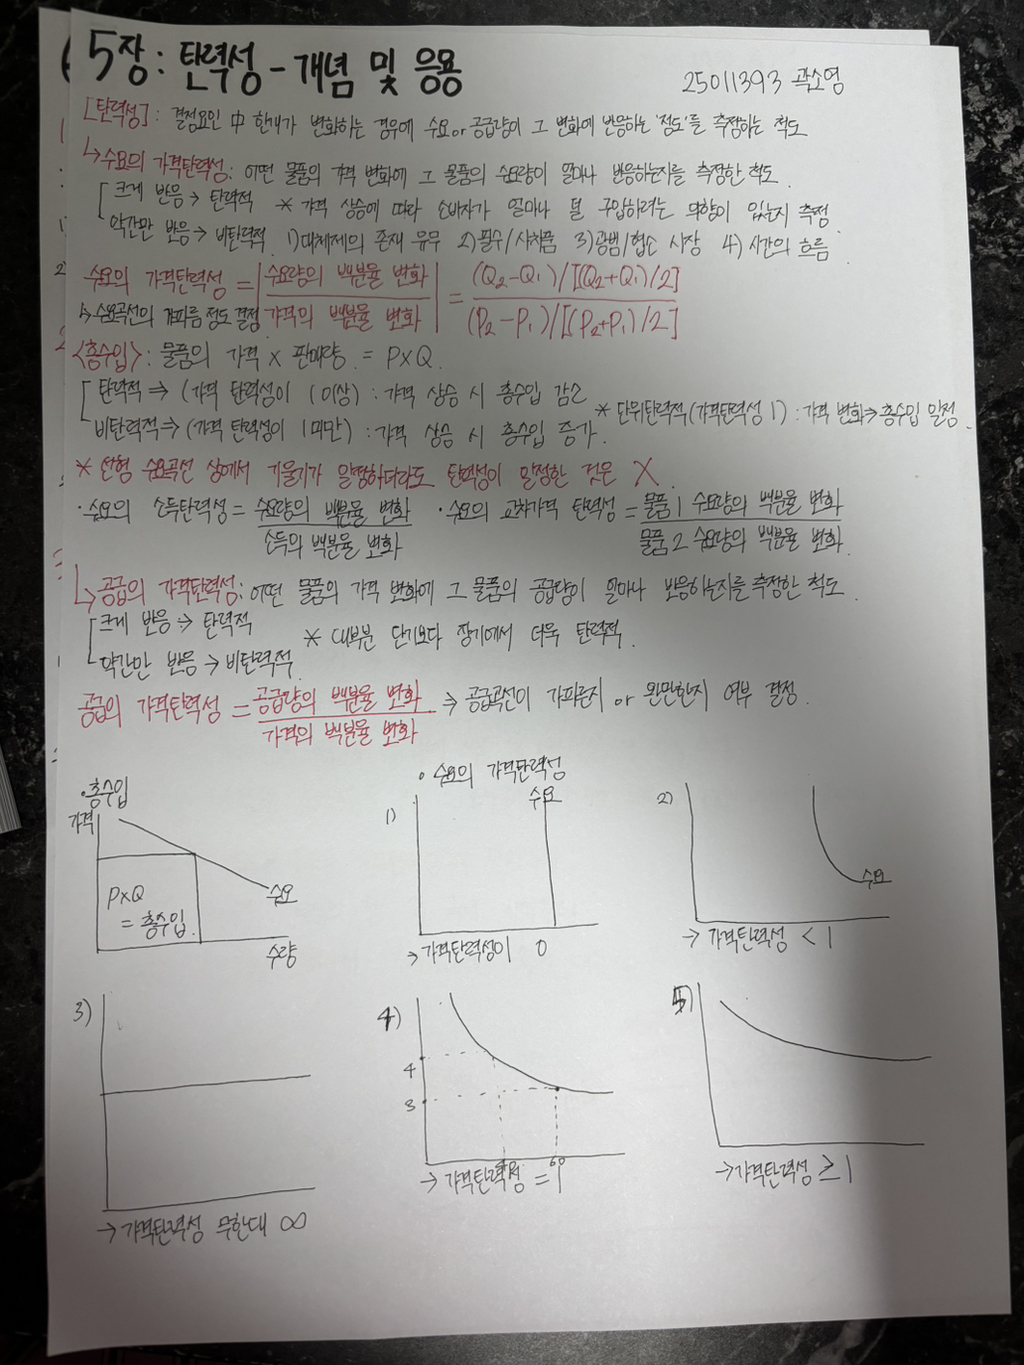 5장: 탄력성 - 개념 및 응용
25011393 곽소영
[탄력성] : 결정요인 中 한개가 변화하는 경우에 수요 or 공급량이 그 변화에 반응하는 '정도'를 측정하는 척도
↳ 수요의 가격탄력성 : 어떤 물품의 가격 변화에 그 물품의 수요량이 얼마나 반응하는지를 측정한 척도.
크게 반응 → 탄력적 * 가격 상승에 따라 소비자가 얼마나 덜 구입하려는 의향이 있는지 측정
약간만 반응 → 비탄력적. 1) 대체제의 존재 유무 2) 필수/사치품 3) 광범/협소 시장 4) 시간의 흐름
수요의 가격탄력성 = |수요량의 백분율 변화 / 가격의 백분율 변화| = (Q2-Q1)/[(Q2+Q1)/2] / (P2-P1)/[(P2+P1)/2]
↳ 수요곡선의 가파름 정도 결정
<총수입> : 물품의 가격 × 판매량. = P×Q.
탄력적 ⇒ (가격 탄력성이 1 이상) : 가격 상승 시 총수입 감소
비탄력적 ⇒ (가격 탄력성이 1 미만) : 가격 상승 시 총수입 증가. * 단위탄력적(가격탄력성 1) : 가격 변화 → 총수입 일정.
* 선형 수요곡선 상에서 기울기가 일정하더라도 탄력성이 일정한 것은 X.
· 수요의 소득탄력성 = 수요량의 백분율 변화 / 소득의 백분율 변화 · 수요의 교차가격 탄력성 = 물품 1 수요량의 백분율 변화 / 물품 2 수요량의 백분율 변화.
↳ 공급의 가격탄력성 : 어떤 물품의 가격 변화에 그 물품의 공급량이 얼마나 반응하는지를 측정한 척도.
크게 반응 → 탄력적
약간만 반응 → 비탄력적. * 대부분 단기보다 장기에서 더욱 탄력적.
공급의 가격탄력성 = 공급량의 백분율 변화 / 가격의 백분율 변화 → 공급곡선이 가파른지 or 완만한지 여부 결정.
· 총수입
가격
P×Q
= 총수입.
수요
수량
· 수요의 가격탄력성
1)
수요
→ 가격탄력성이 0
2)
수요
→ 가격탄력성 < 1
3)
→ 가격탄력성 무한대 ∞
4)
4
3
60
→ 가격탄력성 = 1
5)
→ 가격탄력성 ≥ 1